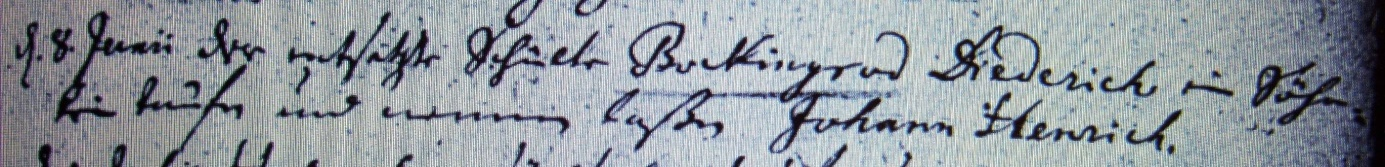 d. 8. Junii der entsetzte Schulte Bockingrod Diederich ein Söhn-
lein taufen und nennen laßen Johann Henrich.